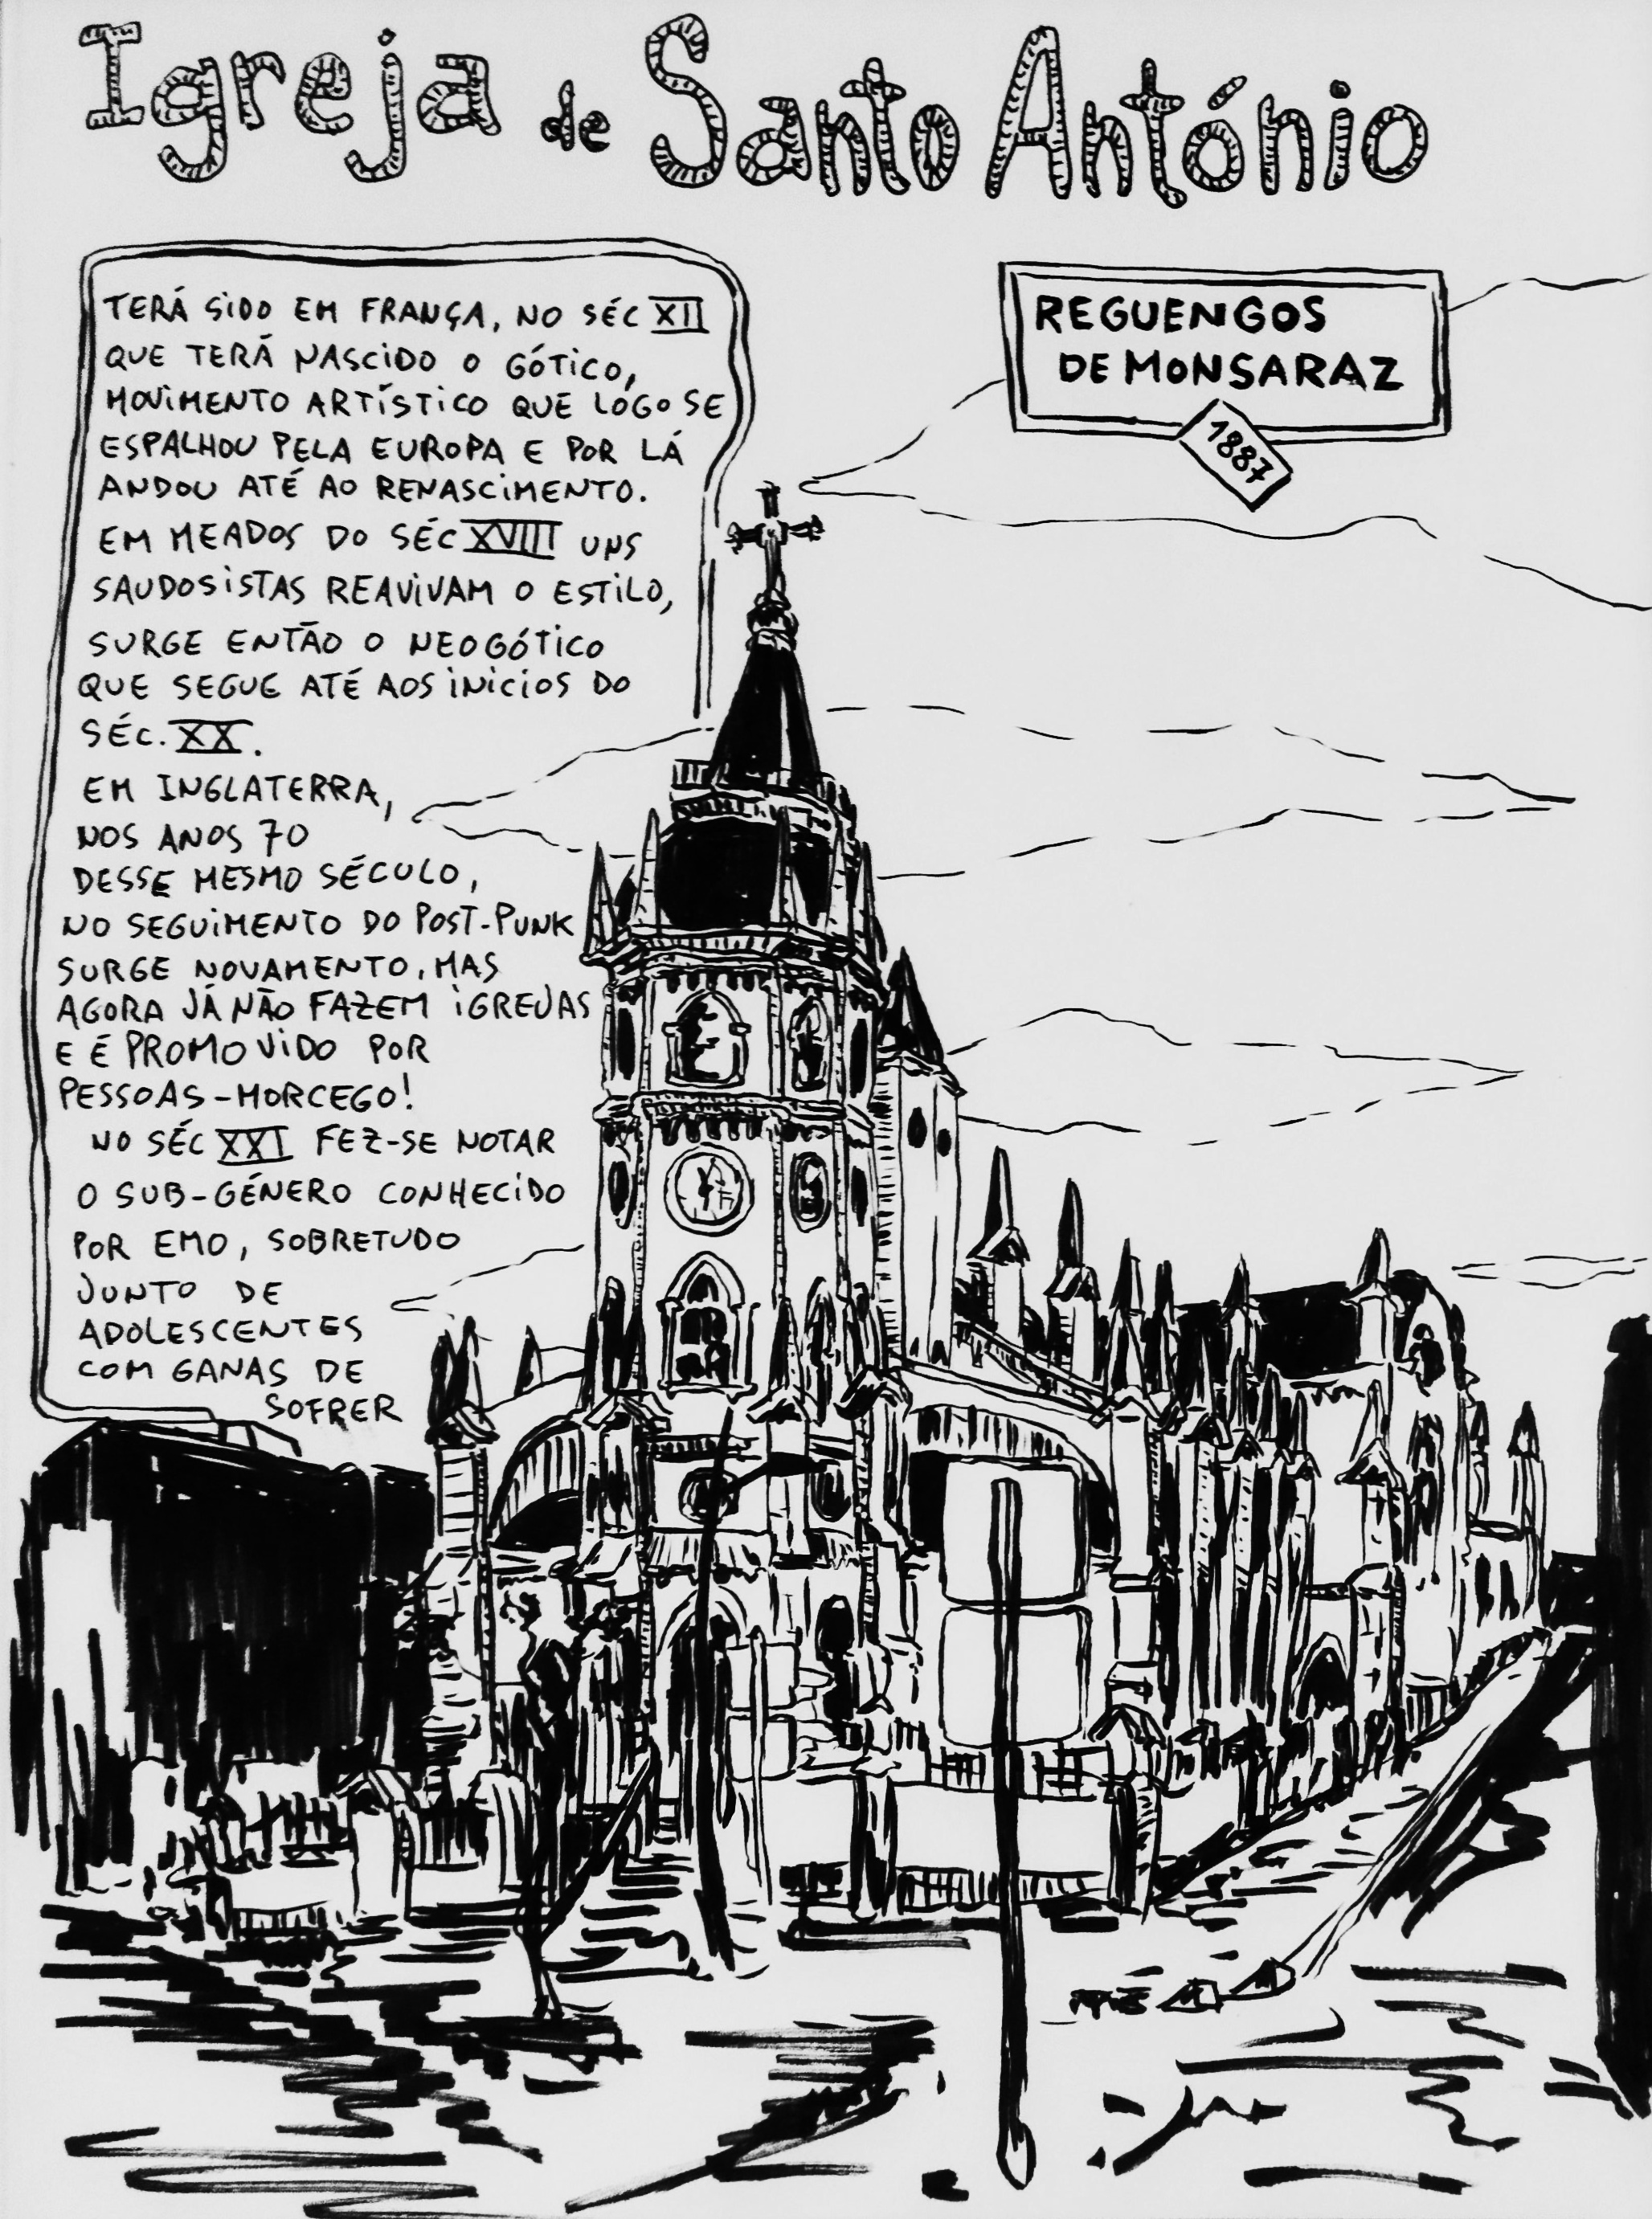 Igreja de Santo António
TERÁ SIDO EM FRANÇA, NO SÉC XII
QUE TERÁ NASCIDO O GÓTICO,
MOVIMENTO ARTÍSTICO QUE LOGO SE
ESPALHOU PELA EUROPA E POR LÁ
ANDOU ATÉ AO RENASCIMENTO.
EM MEADOS DO SÉC XVIII UNS
SAUDOSISTAS REAVIVAM O ESTILO,
SURGE ENTÃO O NEOGÓTICO
QUE SEGUE ATÉ AOS INICIOS DO
SÉC. XX.
EM INGLATERRA,
NOS ANOS 70
DESSE MESMO SÉCULO,
NO SEGUIMENTO DO POST-PUNK
SURGE NOVAMENTO, MAS
AGORA JÁ NÃO FAZEM IGREJAS
E É PROMOVIDO POR
PESSOAS-MORCEGO!
NO SÉC XXI FEZ-SE NOTAR
O SUB-GÉNERO CONHECIDO
POR EMO, SOBRETUDO
JUNTO DE
ADOLESCENTES
COM GANAS DE
SOFRER
REGUENGOS
DE MONSARAZ
1887